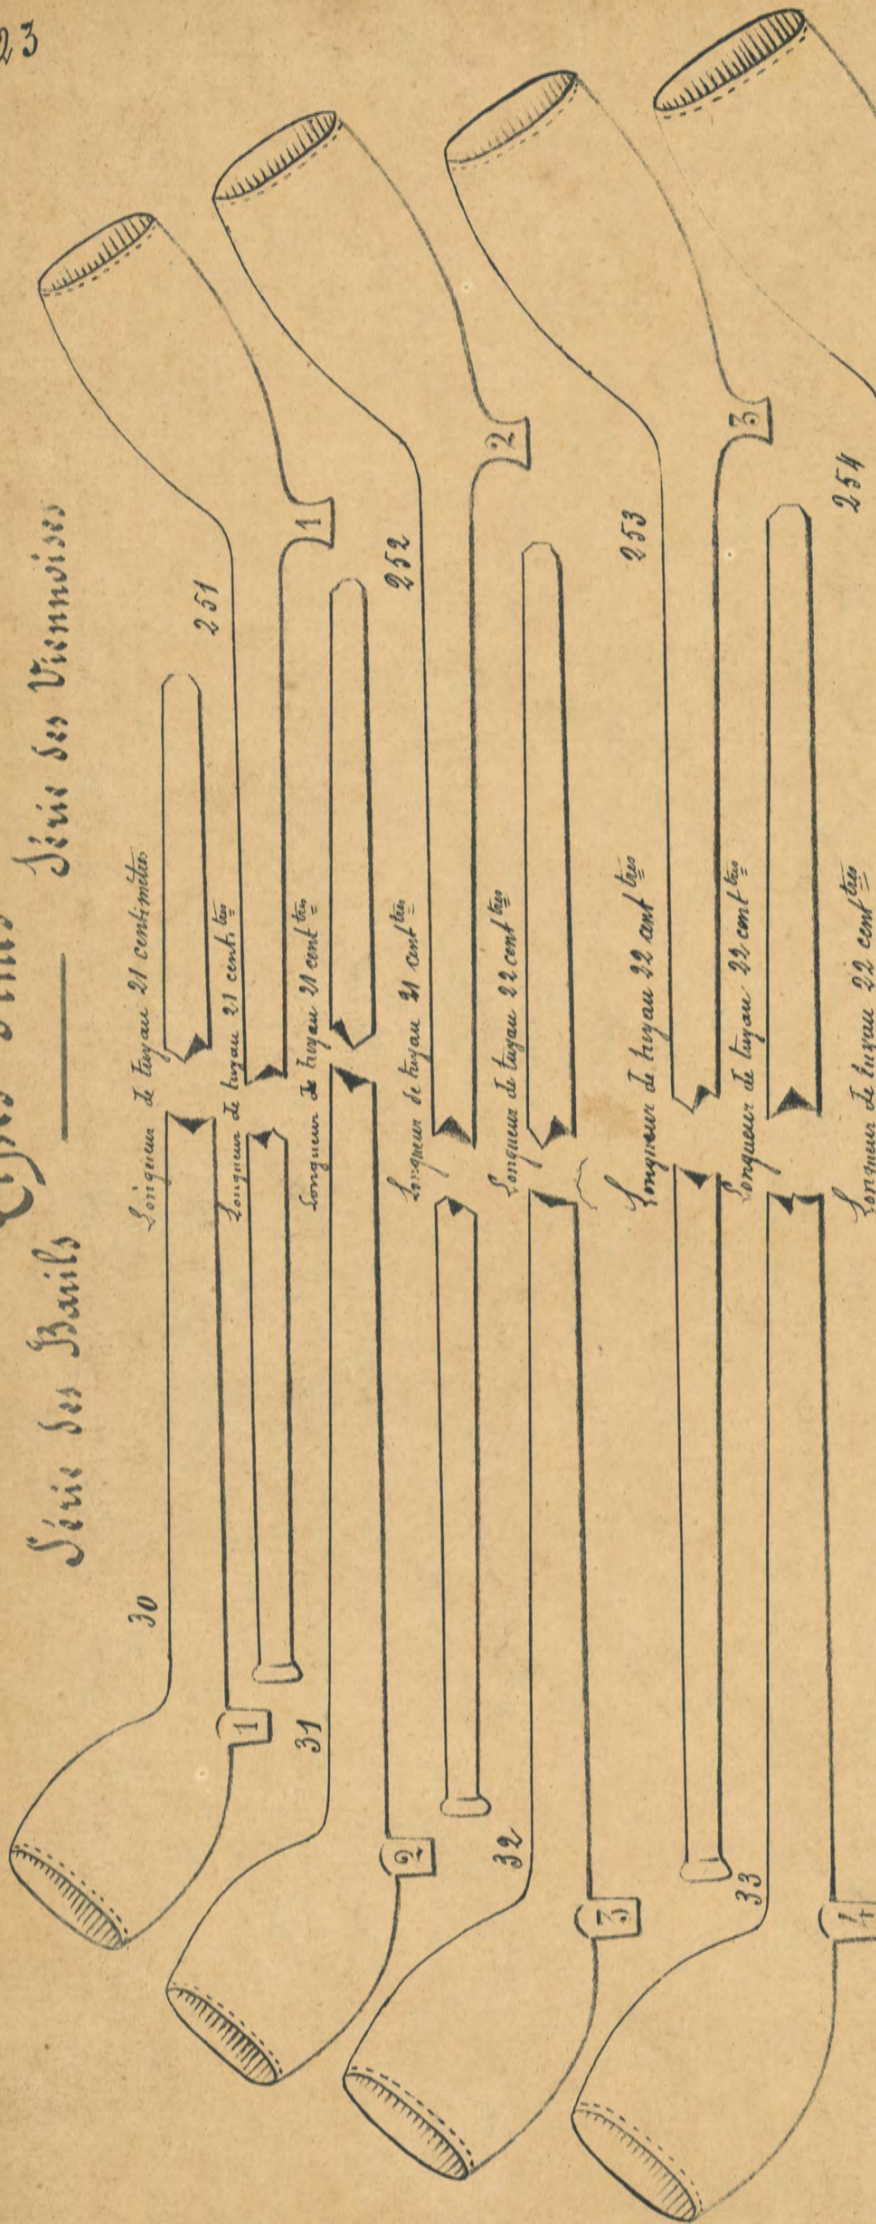 23
Série des Barils
Série des Viennoises
30
Longueur de tuyau 21 centimètres
251
1
Longueur de tuyau 21 centi tres
1
31
Longueur de tuyau 21 cent tres
252
2
Longueur de tuyau 21 cent tres
2
32
Longueur de tuyau 22 cent tres
253
3
Longueur de tuyau 22 cent tres
3
33
Longueur de tuyau 22 cent tres
254
4
Longueur de tuyau 22 cent tres